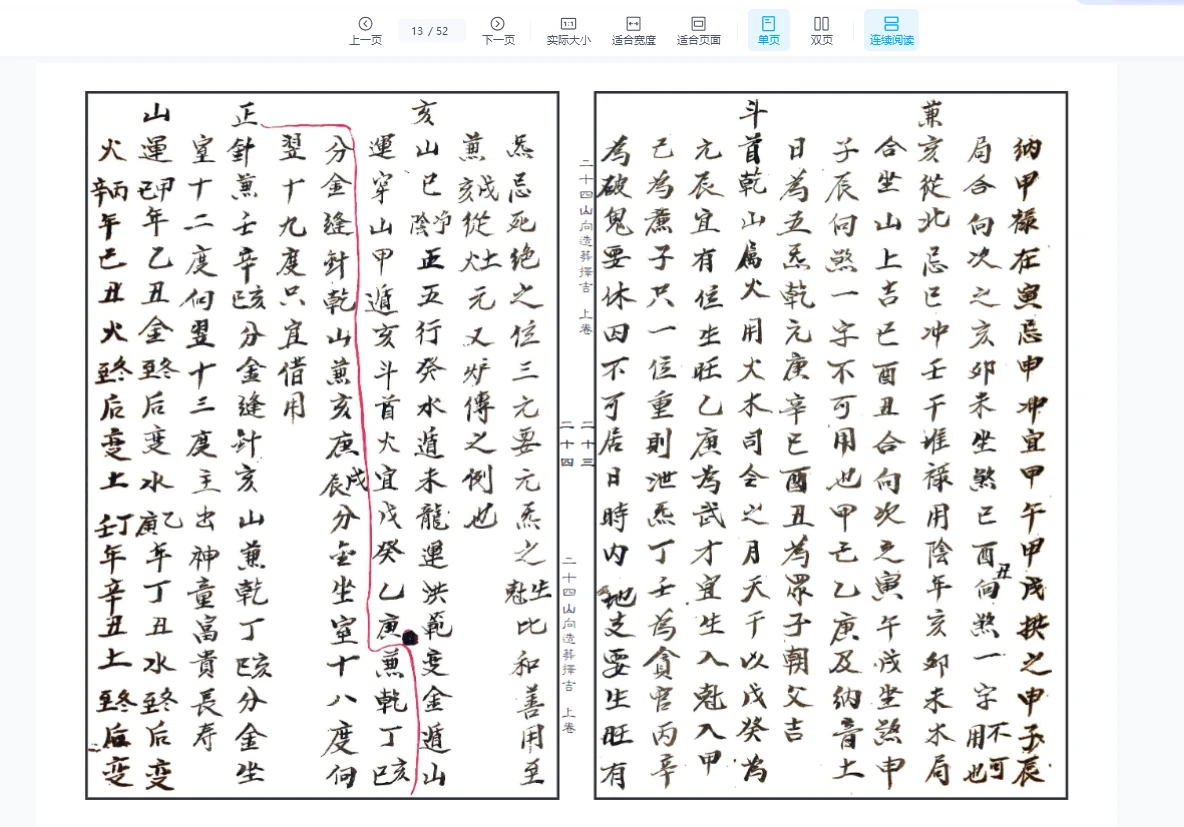 上一页
13 / 52
下一页
实际大小
适合宽度
适合页面
单页
双页
连续阅读
納甲祿在寅忌申冲宜甲午甲戌拱之申子辰
局合向次之亥卯未坐煞巳酉丑向煞一字不可用也
兼亥從此忌巳冲壬干堆祿用陰年亥卯未木局
合坐山上吉巳酉丑合向次之寅午戌坐煞申
子辰向煞一字不可用也甲己乙庚及納音土
日為五炁乾元庚辛巳酉丑為眾子朝父吉
斗首乾山屬火用火木司令之月天干以戊癸為
元辰宜有位生旺乙庚為武才宜生入尅入甲
己為廉子只一位重則泄炁丁壬為貪官丙辛
為破鬼要休囚不可居日時內地支要生旺有
二十四山向造葬擇吉 上卷
二十三
二十四
二十四山向造葬擇吉 上卷
炁忌死绝之位三元要元炁之生尅比和善用至
兼戌亥從灶元又炉傳之例也
亥山巳净陰正五行癸水遁未龍運洪範变金遁山
運穿山甲遁亥斗首火宜戊癸乙庚兼乾丁亥巳
分金缝針乾山兼亥庚戌辰分金坐室十八度向
翌十九度只宜借用
正針兼壬辛亥巳分金缝針亥山兼乾丁亥巳分金坐
室十二度向翌十三度主出神童富貴長寿
山運甲己年乙丑金冬至后变水乙庚年丁丑水冬至后变
火丙辛年己丑火冬至后变土丁壬年辛丑土冬至后变